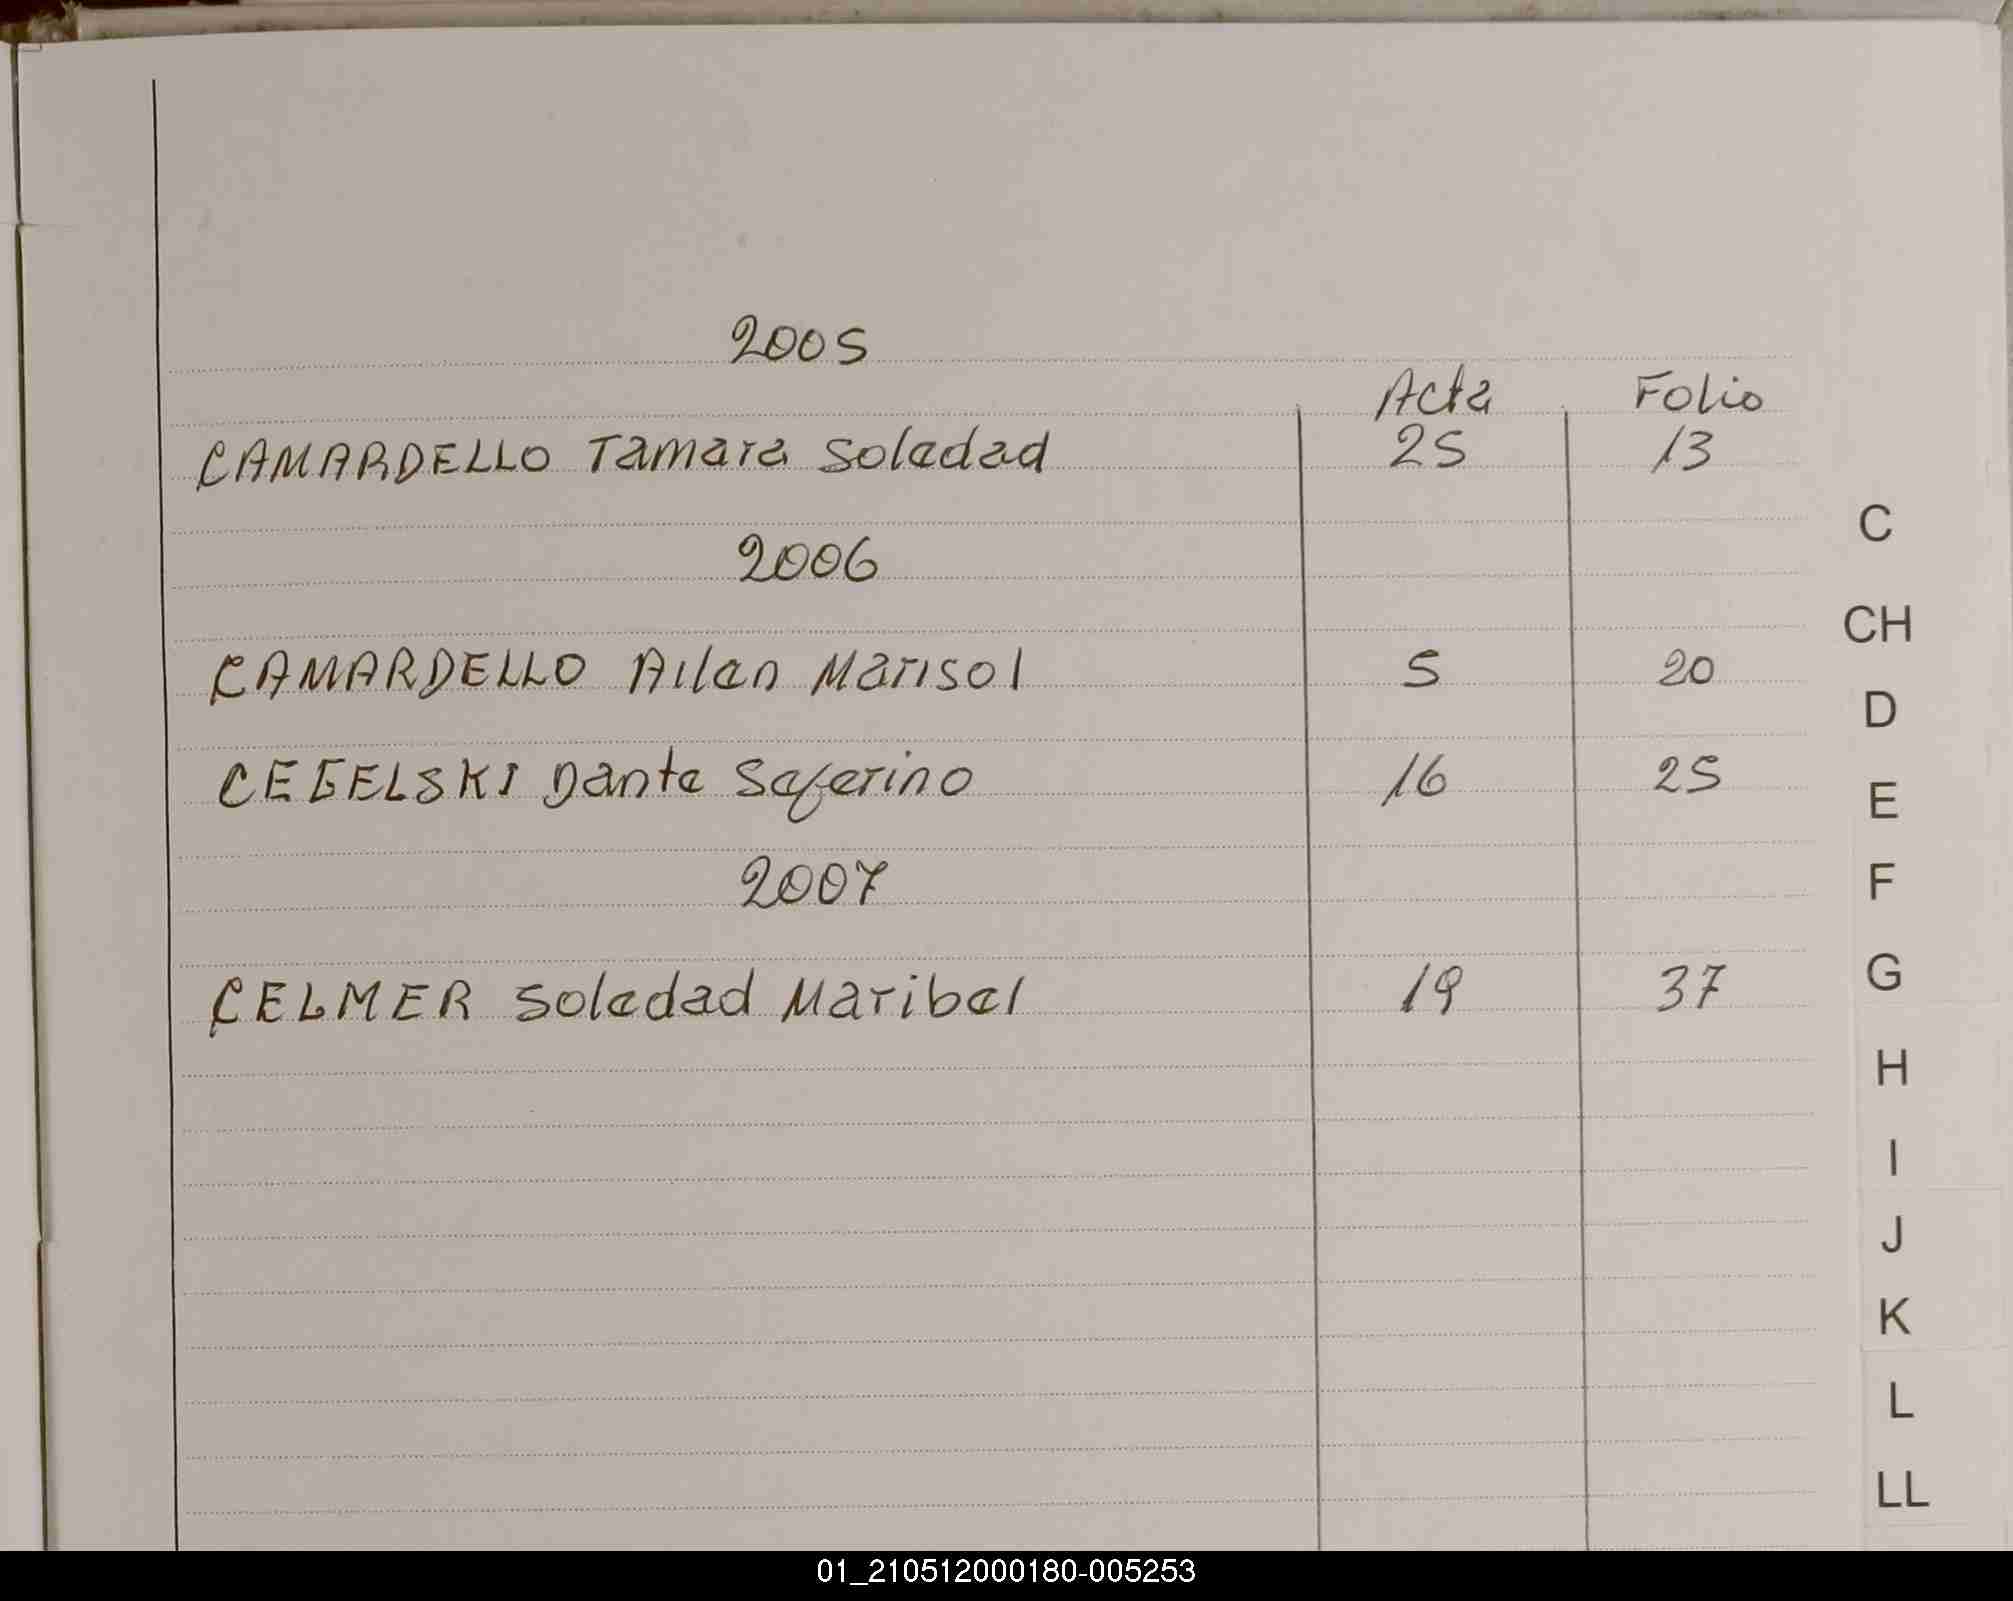 2005
Acta Folio
CAMARDELLO Tamara Soledad 25 13
2006
CAMARDELLO Ailen Marisol 5 20
CEGELSKI Dante Seferino 16 25
2007
CELMER Soledad Maribel 19 37
C
CH
D
E
F
G
H
I
J
K
L
LL
01_210512000180-005253